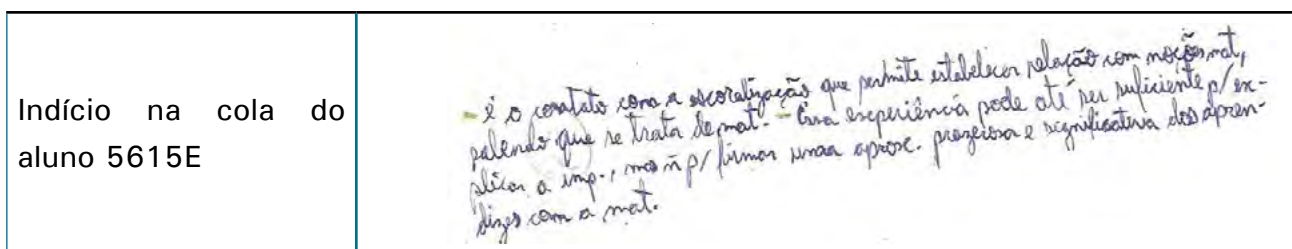 Indício na cola do
aluno 5615E
- é o contato com a escoralização que permite estabelecer relação com noções mat,
sabendo que se trata de mat. - Essa experiência pode até ser suficiente p/ ex-
plicar a imp., mas ñ p/ firmar uma aprox. prazeiosa e significativa dos apren-
dizes com a mat.